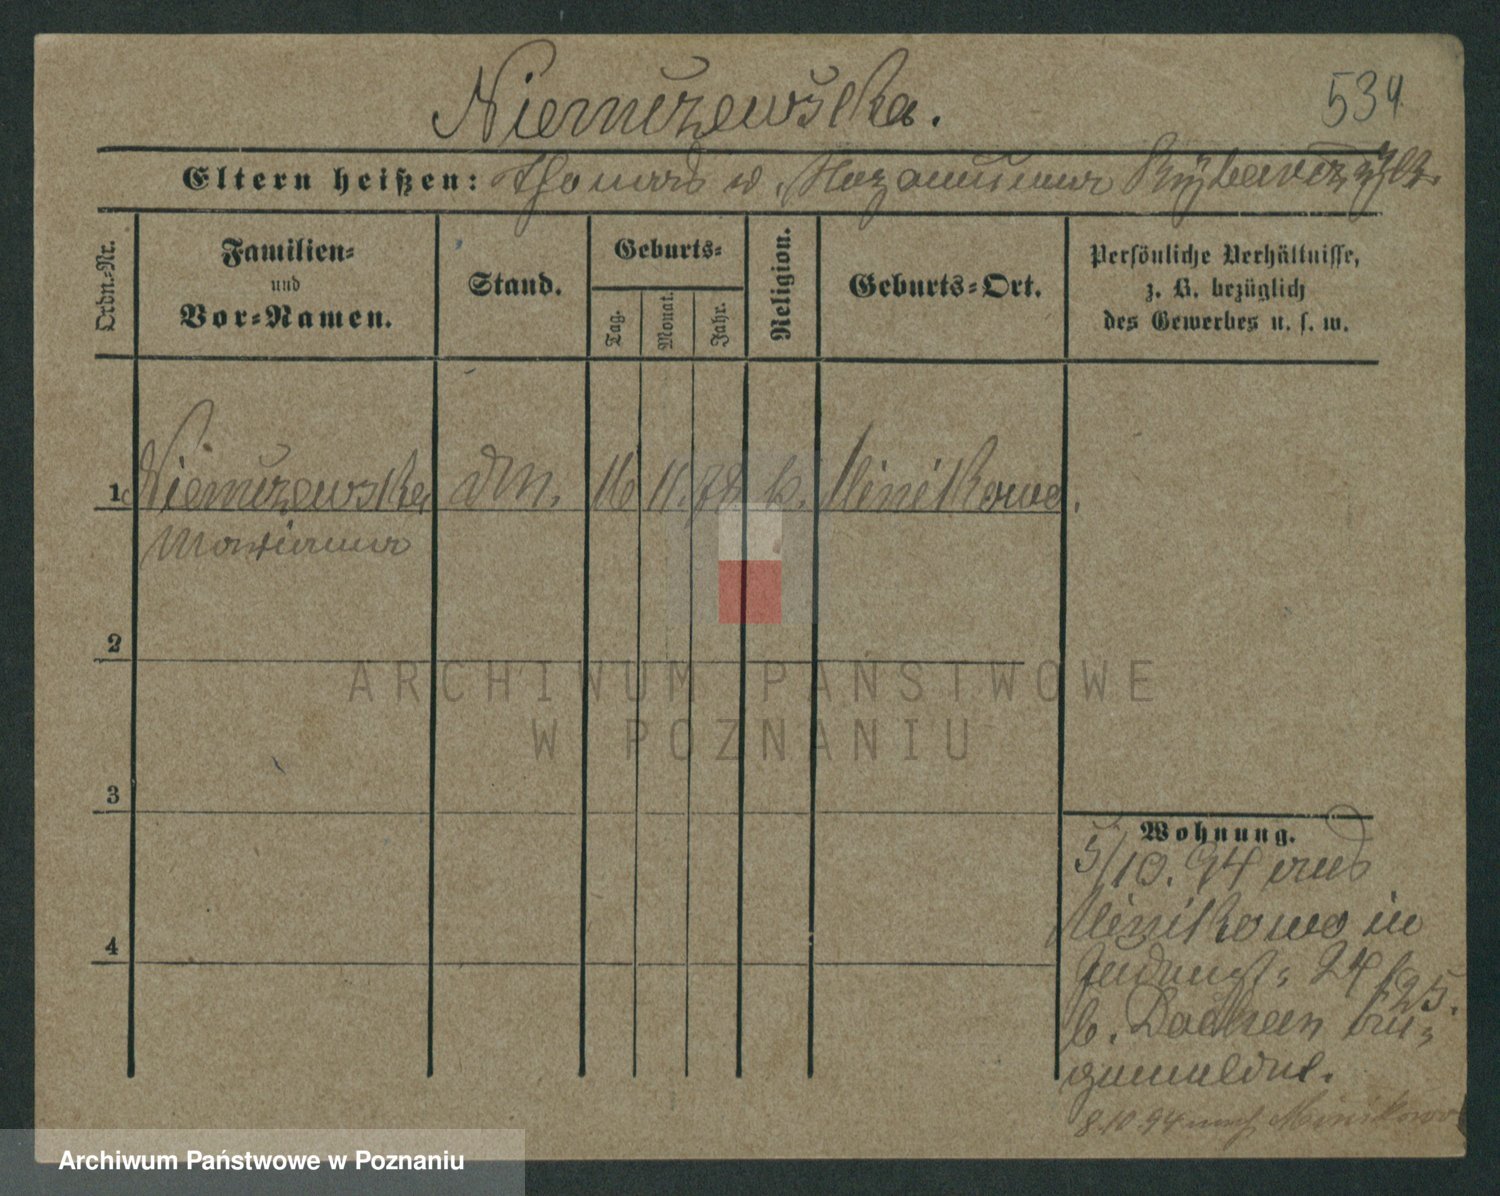 Niemczewska.
534
Eltern heißen: Thomas u. Maryanna
Ordn.-Nr.
Familien-
und
Vor-Namen.
Stand.
Geburts-
Tag.
Monat.
Jahr.
Religion.
Geburts-Ort.
Persönliche Verhältnisse,
z. B. bezüglich
des Gewerbes u. s. w.
1 Niemczewska 16 11. 78 k. Minikowo.
Marianna
2
ARCHIWUM PAŃSTWOWE
W POZNANIU
3
4
Wohnung.
5/10. 94 aus
Minikowo in
24/25.
b.
gemeldet.
8.10.94 nach Minikowo
Archiwum Państwowe w Poznaniu